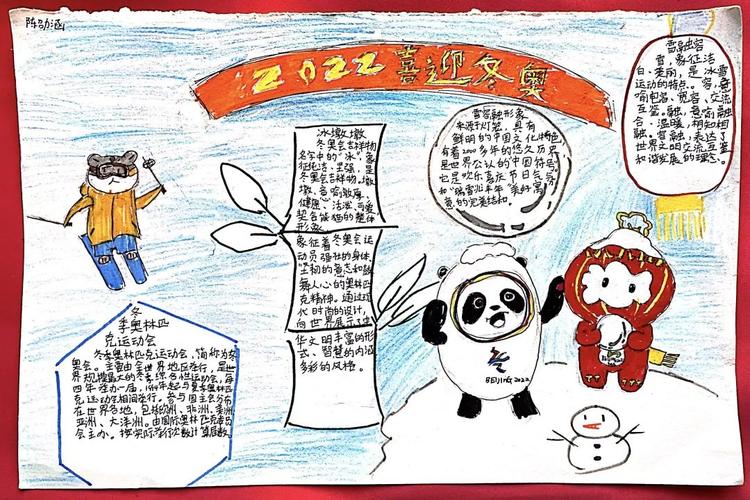 陈劭涵
2022喜迎冬奥
冰墩墩
冬奥会吉祥物
名字中的“冰”，象
征纯洁、坚强，是
冬奥会吉祥物。墩
墩，意喻敦厚、
健康、活泼、可爱
契合熊猫的整体
形象
象征着冬奥会运
动员强壮的身体、
坚韧的意志和鼓
舞人心的奥林匹
克精神。通过现
代时尚的设计，
向世界展示了中
华文明丰富的形
式、智慧的内涵
多彩的风格。
雪容融形象
来源于灯笼，具有
鲜明的中国文化特色
有着2000多年的悠久历史
是世界公认的中国符号
它是欢乐喜庆节日气氛
和“瑞雪兆丰年”美好寓
意的完美结合。
雪融容
雪，象征洁
白、美丽，是冰雪
运动的特点。容，意
喻包容、宽容，交流
互鉴。融，意喻融
合、温暖，相知相
融。容融，表达了
世界文明交流互鉴
和谐发展的理念。
冬
季奥林匹
克运动会
冬季奥林匹克运动会，简称为冬
奥会。主要由全世界地区举行，是世
界规模最大的冬季综合性运动会，每
四年举办一届，1994年起与夏季奥林匹
克运动会相间举行。参与国主要分布
在世界各地，包括欧洲、非洲、美洲
亚洲、大洋洲。由国际奥林匹克委员
会主办。按实际举行次数计算届数。
BEIJING 2022